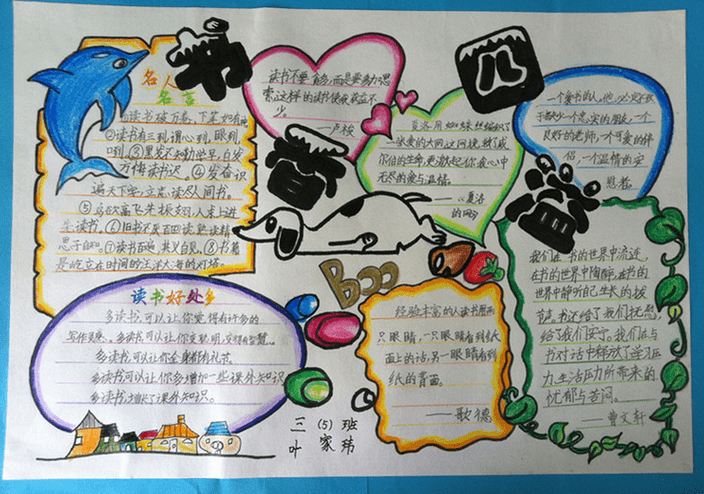 书
香
四
溢
名人
名言
读书破万卷，下笔如有神
②读书有三到，谓心到，眼到
口到。③黑发不知勤学早，白发
方悔读书迟。④发奋识
遍天下字，立志读尽人间书。
⑤鸟欲高飞先振翅，人求上进
先读书。⑥旧书不厌百回读，熟读精
思子自知。⑦读书百遍，其义自见。⑧书籍
是屹立在时间的汪洋大海的灯塔。
读书不要贪多，而是要多加思
索，这样的读书使我获益不
少。
——卢梭
夏洛用蜘蛛丝编织了
一张爱的大网，这网挽救了威
尔伯的生命，更激起你我心中
无尽的爱与温情。
——《夏洛
的网》
一个爱书的人，他必定不致
于缺少一个忠实的朋友，一个
良好的老师，一个可爱的伴
侣，一个温情的安
慰者。
我们在书的世界中流连，
在书的世界中陶醉，在书的
世界中静听自己生长的拔
节声。书还给了我们抚慰，
给了我们安宁。我们在与
书对话中释放了学习压
力，生活压力所带来的
忧郁与苦闷。
——曹文轩
读书好处多
多读书，可以让你觉得有许多的
写作灵感。多读书，可以让你变聪明，变得有智慧。
多读书，可以让你全身都有礼节。
多读书，可以让你多增加一些课外知识
多读书，增长了课外知识。
Boo
经验丰富的人读书用两
只眼睛，一只眼睛看到纸
面上的话，另一眼睛看到
纸的背面。
——歌德
三（5）班
叶家玮